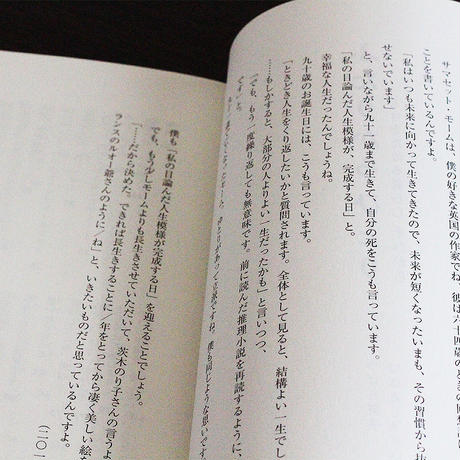 サマセット・モームは、僕の好きな英国の作家でね。彼は六十四歳のときの回想
ことを書いているんですよ。
「私はいつも未来に向かって生きてきたので、未来が短くなったいまも、その習慣から抜
せないでいます」
と、言いながら九十一歳まで生きて、自分の死をこうも言っています。
「私の目論んだ人生模様が、完成する日」と。
幸福な人生だったんでしょうね。
九十歳のお誕生日には、こうも言っています。
「ときどき人生をくり返したいかと質問されます。全体として見ると、結構よい一生でし
……もしかすると、大部分の人よりよい一生だったかも」と言いつつ、
「でも、もう一度繰り返しても無意味です。前に読んだ推理小説を再読するように、
です」と。
ゆとりがあって立派ですね。僕も同じような思いです
僕も「私の目論んだ人生模様が完成する日」を迎えることでしょう。
でも、もう少しモームよりも長生きさせていただいて、茨木のり子さんの言うよ
「……だから決めた。できれば長生きすることに 年をとってから凄く美しい絵を
ランスのルオー爺さんのように ね」と、いきたいものだと思っているんですよ。
(二〇一